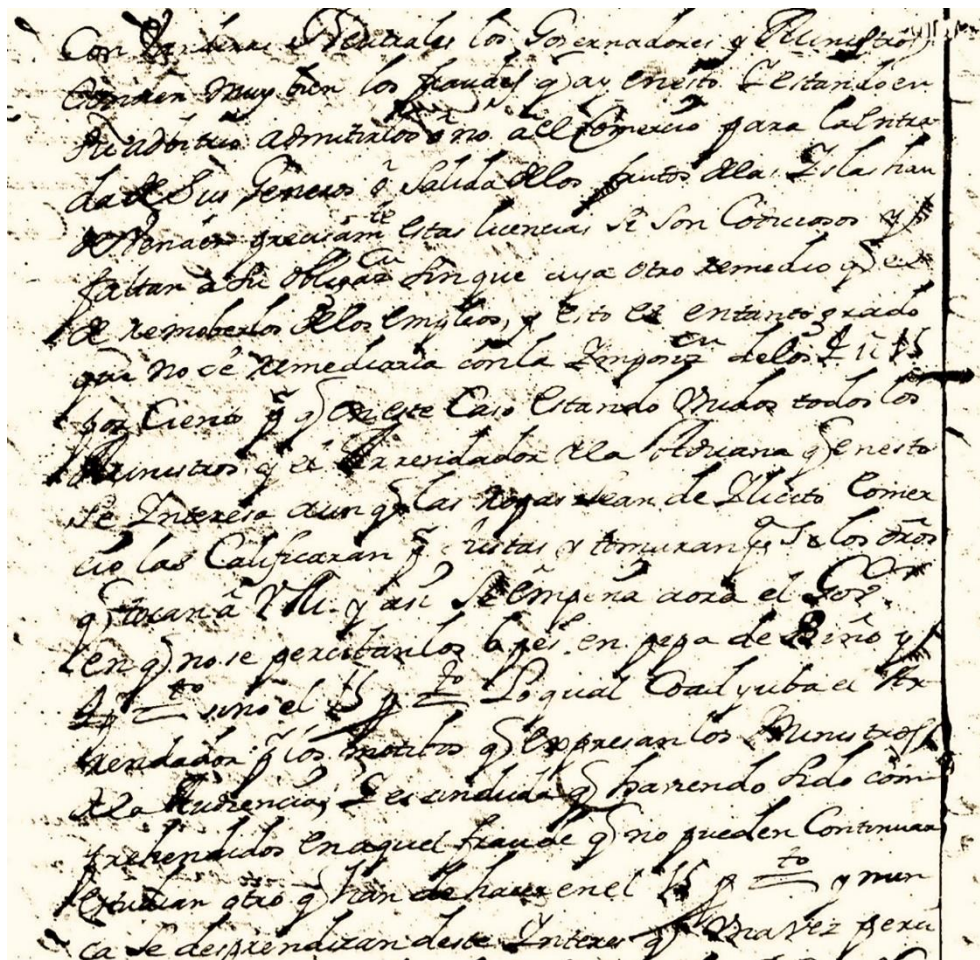 Con Banderas Neutrales los Governadores y Ministros
tambien muy bien los fraudes q̃ ay en esto. Y estando en
su adbitrio admitirlos o no all Comercio para la Entra
da de Sus Generos o Salida dellos frutos dellas Yslas han
de Vender precisam.te estas licencias si son Codiciosos y
faltan a su obligac.n sin que aya otro remedio q̃ el
de remoberlos dellos empleos, y esto es en tanto grado
que no se remediaria con la Imposiz.n delos 4 u 15
por Ciento p.q̃ en este Caso estando Unidos todos los
Ministros y el Arrendador dela Aduana q̃ en esto
se Interesa aunq̃ las Ropas sean de Ylicito Comer
cio las Calificaran p.r y tomaran p.a Si los
q̃ tocan a V.M. y asi Se empeña aora el Gov.or
en q̃ no se percivan los 6 p.es en pepa de y
4 p. to sino el 15 p. to Lo qual Coadyuba el Ar
rendador p.r los motibos q̃ expresan los Ministros
dela Audiencia, Y es sin duda q̃ haviendo sido com
prehendidos en aquel fraude q̃ no pueden Continuar
estudian otro q̃ han de hacer en el 15 p. to y nun
ca se desprendiran deste Interes q̃ Una Vez